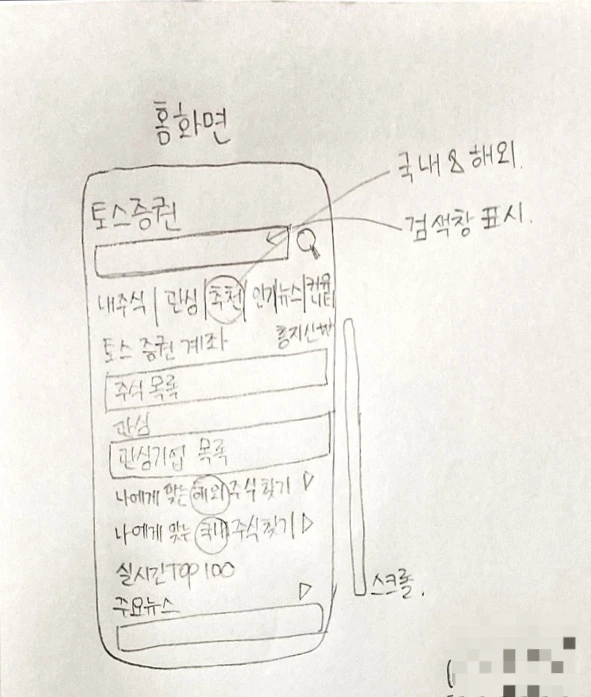 홈화면
국내 & 해외.
토스증권
검색창 표시.
내주식 | 관심 | 추천 | 인기뉴스 | 커뮤니티
토스 증권 계좌
주식 목록
관심
관심기업 목록
나에게 맞는 해외 주식 찾기 ▷
나에게 맞는 국내 주식 찾기 ▷
실시간 TOP 100
스크롤.
주요뉴스 ▷